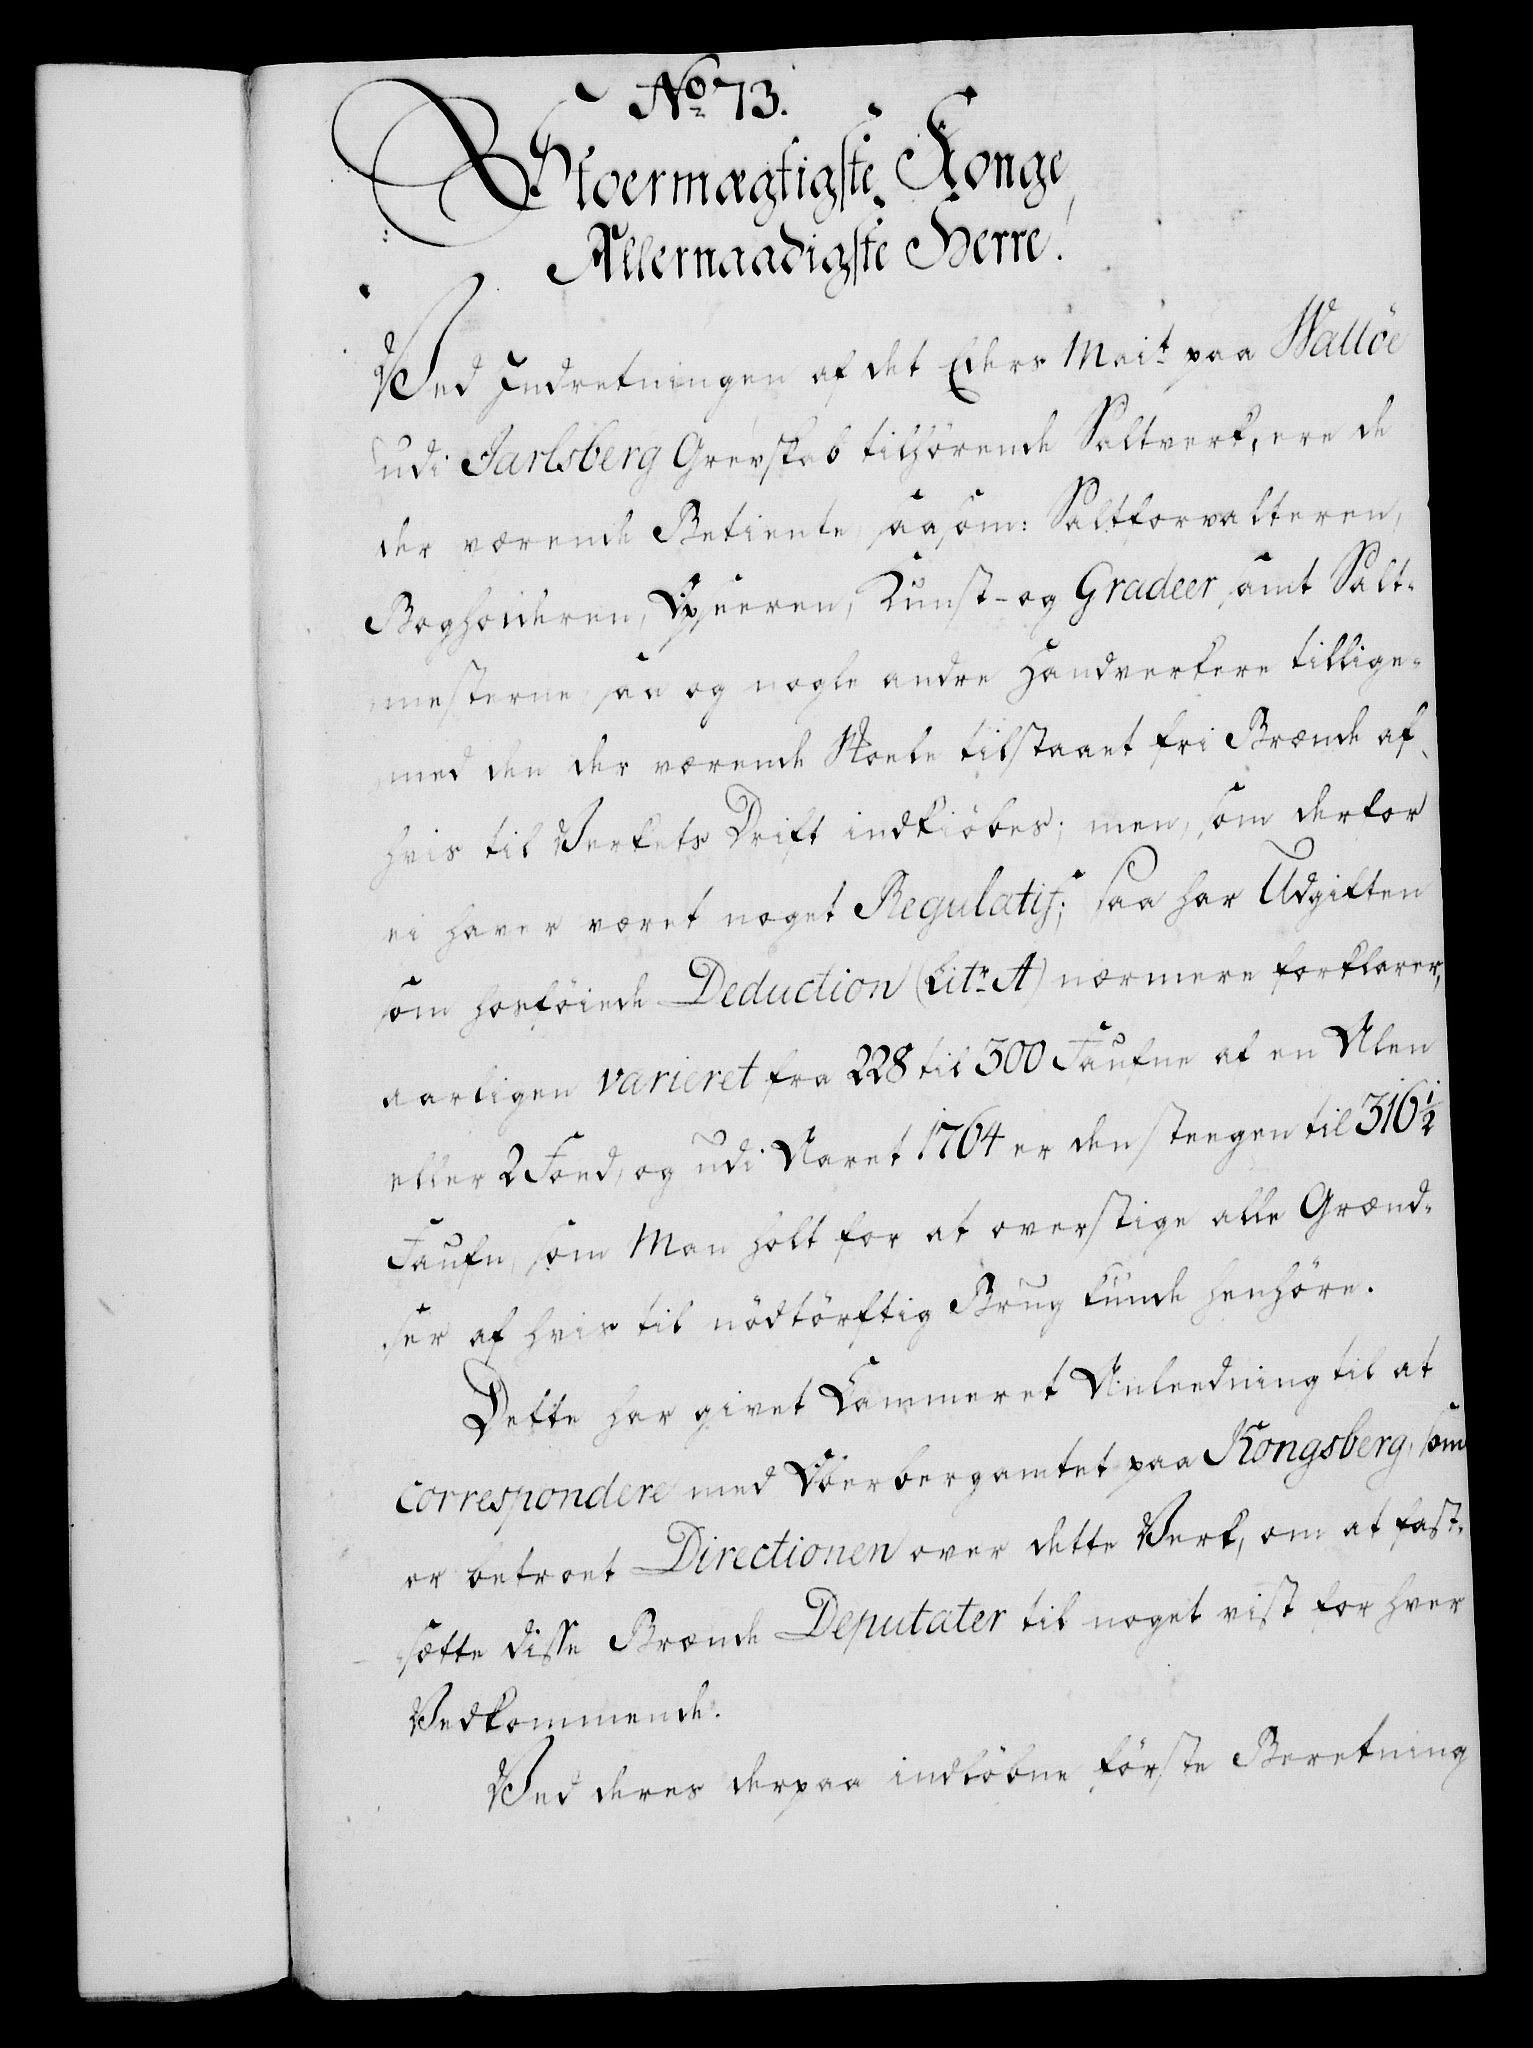 No 73.
Stoermægtigste Konge,
Allernaadigste Herre!
Ved Indretningen af det Eders Mait paa Walløe
udi Jarlsberg Grevskab tilhörende Saltverk, ere de
der værende Betiente, saasom: Saltforvalteren,
Bogholderen, Opseeren, Kunst- og Gradeer samt Salt-
mesterne, saa og nogle andre Handverkere tillige-
med den der værende Skole tilstaaet fri Brænde af
hvis til Verkets Drift indkiöbes; men, som derfor
ei haver været noget Regulatif; saa har Udgiften
som hosföiede Deduction (Litr A) nærmere forklarer,
aarligen varieret fra 228 til 300 Faufne af en Alen
eller 2 Foed, og udi Aaret 1764 er den steegen til 316 1/2
Faufn, som Man holt for at overstige alle Grænd-
ser af hvis til nödtörftig Brug kunde henhöre.
Dette har givet Kammeret Anleedning til at
correspondere med Oberbergamtet paa Kongsberg, som
er betroet Directionen over dette Verk, om at fast-
sætte disse Brænde Deputater til noget vist for hver
Vedkommende.
Ved deres derpaa indlöbne förste Beretning